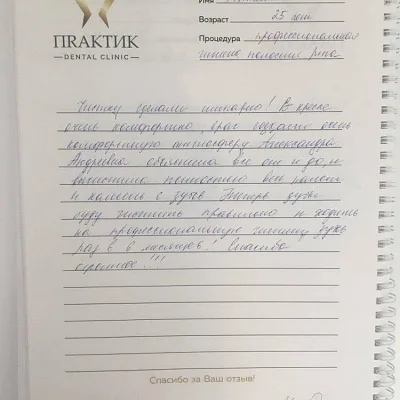 Имя
ПRАКТИК
DENTAL CLINIC
Возраст 25 лет
Процедура профессиональная
чистка полости рта
Чистку сделали шикарно! В кресле
очень комфортно, врач создала очень
комфортную атмосферу Александра
Андреевна объяснила все от и до, и
вычистила полностью весь налет
и камень с зубов Теперь зубы
буду чистить правильно и ходить
на профессиональную чистку зубов
раз в 6 месяцев! Спасибо
огромное!!!
Спасибо за Ваш отзыв!